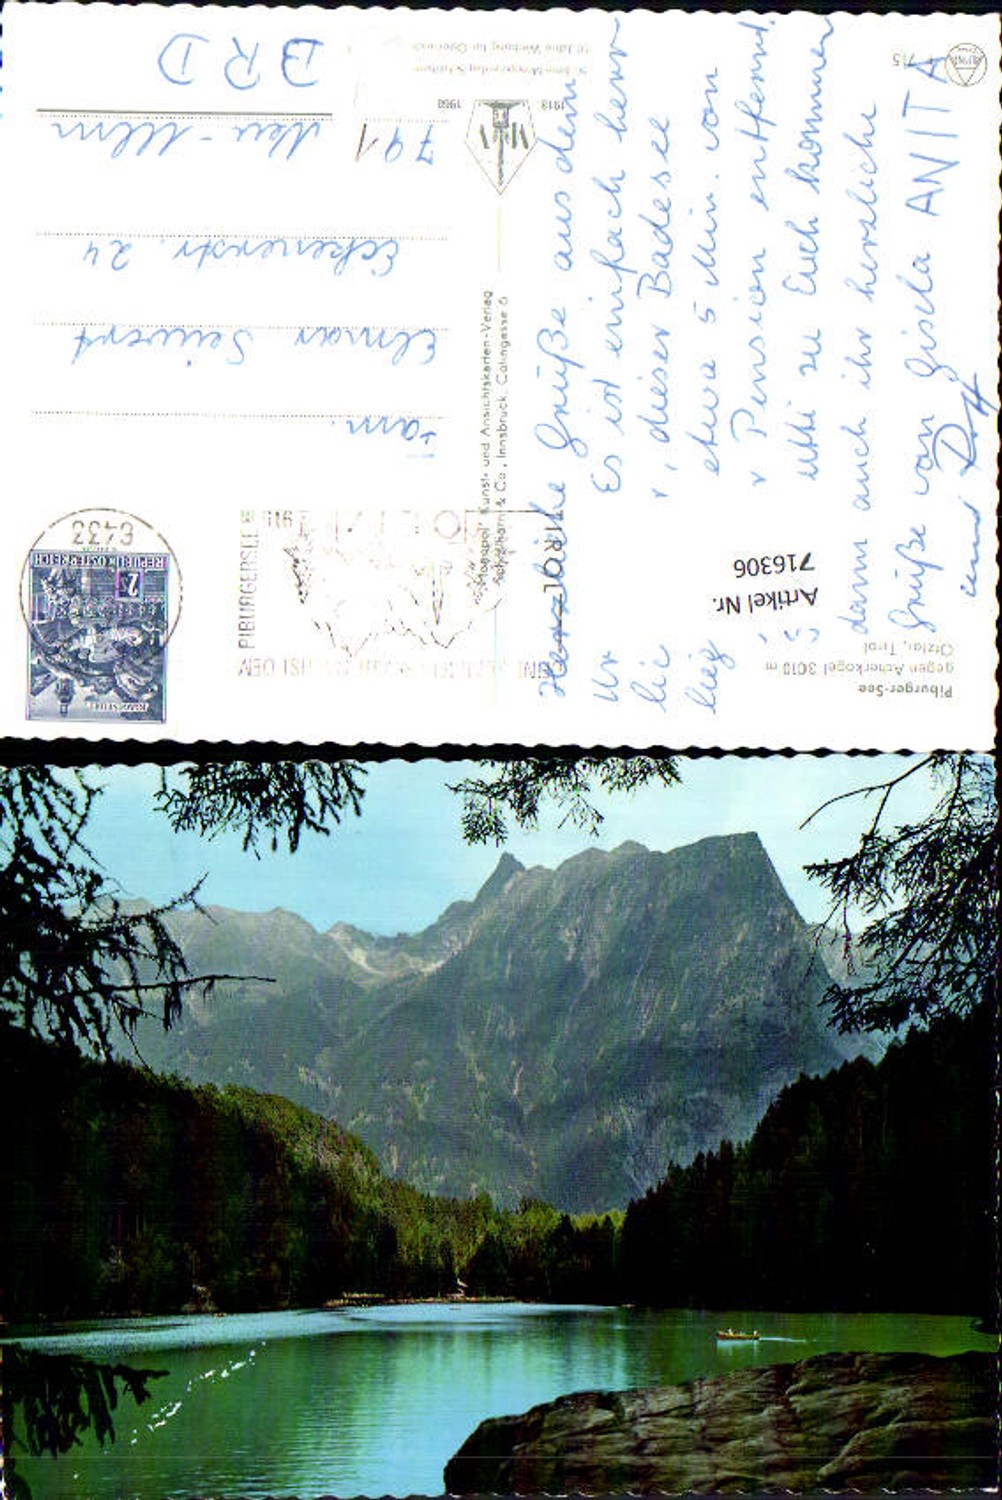 Piburger-See
gegen Acherkogel 3010 m
Ötztal, Tirol
Artikel Nr.
716306
715
1918 1968
"Monopol" Kunst- und Ansichtskarten-Verlag
& Co., Innsbruck, Colingasse 6
6433
REPUBLIK ÖSTERREICH
2
PIBURGERSEE
TIROL
Fam.
Elmar Seiwert
Eckenerstr. 24
791 Neu-Ulm
BRD
Herzliche Grüße aus dem
Ur
Es ist einfach herr
lic
, dieser Badesee
lieg
etwa 5 Min. von
Pension entfernt.
zu Euch kommen
dann auch ihr herzliche
Grüße von Gisela ANITA
und Rolf